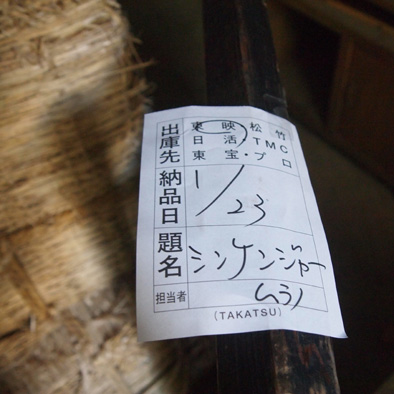 出庫先
東映松竹
日活TMC
東宝・プロ
納品日
1/23
題名
シンケンジャー
担当者
(TAKATSU)